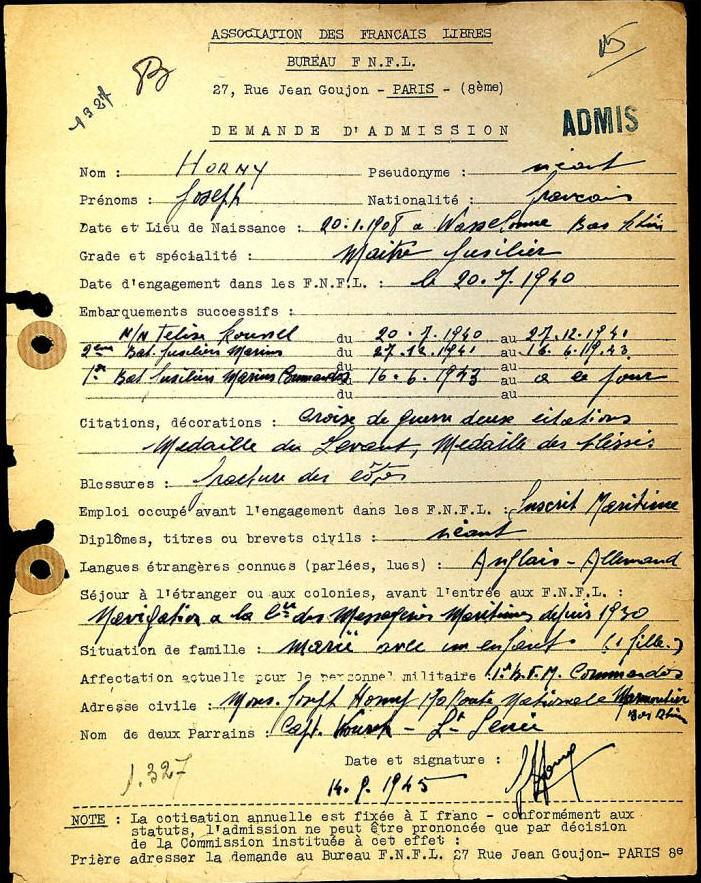 ASSOCIATION DES FRANCAIS LIBRES
BUREAU F N.F.L.
27, Rue Jean Goujon - PARIS - (8ème)
1327
ADMIS
DEMANDE D'ADMISSION
Nom : HORNY Pseudonyme : néant
Prénoms : Joseph Nationalité : francais
Date et Lieu de Naissance : 20.1.1908 a Wasselonne Bas Rhin
Grade et spécialité : Maitre fusilier
Date d'engagement dans les F.N.F.L. : le 20.7.1940
Embarquements successifs :
du 20.7.1940 au 27.12.1941
2ème Bat. fusiliers Marins du 27.12.1941 au 16.6.1943
du au
1er Bat fusiliers Marins Commandos du 16.6.1943 au a ce jour
du au
Citations, décorations : Croix de guerre deux citations
Medaille du Levant, Medaille des blessés
Blessures : fracture des côtes
Emploi occupé avant l'engagement dans les F.N.F.L. : Inscrit Maritime
Diplômes, titres ou brevets civils : néant
Langues étrangères connues (parlées, lues) : Anglais - Allemand
Séjour à l'étranger ou aux colonies, avant l'entrée aux F.N.F.L. :
Navigation a la Cie des Messageries Maritimes depuis 1930
Situation de famille : Marié avec un enfant (1 fille.)
Affectation actuelle pour le personnel militaire : 1er B.F.M. Commandos
Adresse civile : Mons. Joseph Horny Route Nationale Marmoutier
Bas Rhin
Nom de deux Parrains : Capt. - Lt
Date et signature :
1.327
14.9.1945
NOTE : La cotisation annuelle est fixée à I franc - conformément aux
statuts, l'admission ne peut être prononcée que par décision
de la Commission instituée à cet effet :
Prière adresser la demande au Bureau F.N.F.L. 27 Rue Jean Goujon- PARIS 8e